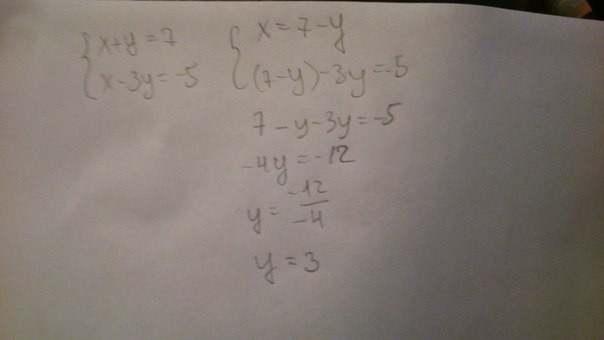 {x+y=7
x-3y=-5
{x=7-y
(7-y)-3y=-5
7-y-3y=-5
-4y=-12
y=-12/-4
y=3